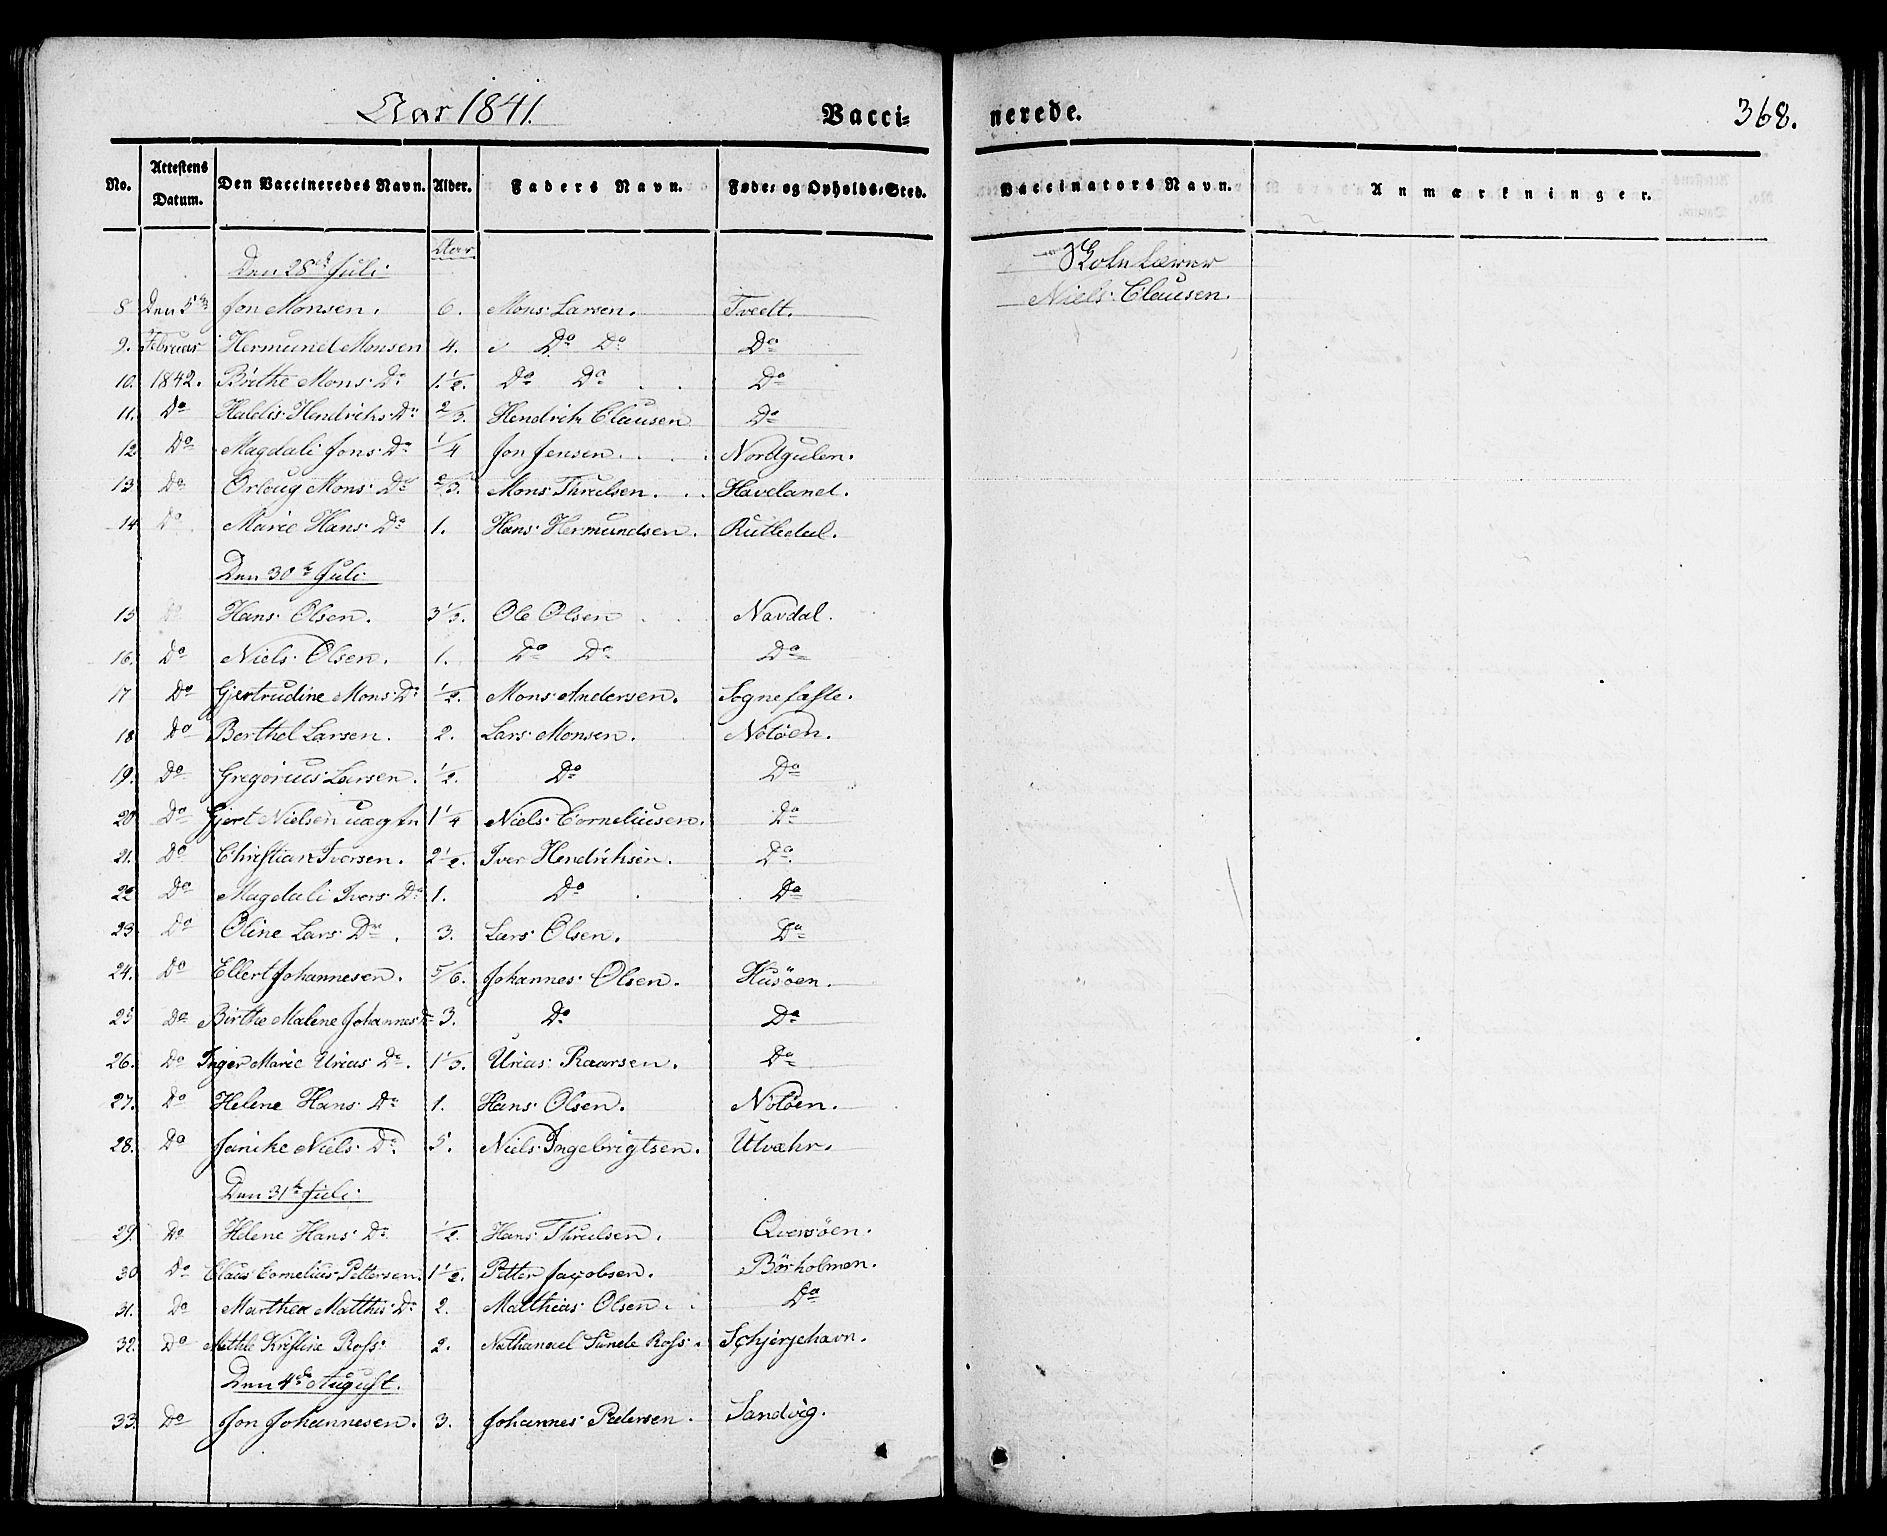 Aar 1841. Vacci- nerede. 368.
No. Attestens Datum. Den Vaccineredes Navn. Alder. Faders Navn. Føde- og Opholds-Sted. Vaccinators Navn. Anmærkninger.
Den 28de Juli. Aar Skolelærer
8. Den 5te Jon Monsen. 6. Mons Larsen. Tvedt. Niels Clausen.
9. Februar Hermund Monsen 4. Do Do Do
10. 1842. Birthe Mons Dr 1 1/2. Do Do Do
11. Do Haldis Hendrichs Dr 2/3. Hendrich Clausen Do
12 Do Magdali Jons Dr 1/4 Jon Jensen. Nordgulen.
13 Do Orloug Mons Dr 2/3. Mons Thrulsen. Haveland.
14 Do Marie Hans Dr 1. Hans Hermundsen. Rutledal.
Den 30te Juli
15 Do Hans Olsen. 3 1/3. Ole Olsen Navdal.
16. Do Niels Olsen. 1. Do Do Do
17 Do Gjertrudine Mons Dr 1/2. Mons Andersen. Sognefæste.
18 Do Berthel Larsen. 2. Lars Monsen. Notöen.
19. Do Gregorius Larsen. 1/2. Do Do
20 Do Gjert Nielsen uægtn 1 1/4 Niels Corneliusen. Do
21. Do Christian Iversen. 2 1/2. Iver Hendrichsen. Do
22 Do Magdali Ivers Dr 1. Do Do
23 Do Oline Lars Dr. 3. Lars Olsen. Do
24. Do Ellert Johannesen. 5/6. Johannes Olsen. Husöen.
25 Do Birthe Malene Johannes Dr 3. Do Do
26. Do Inger Marie Urias Dr. 1 1/3. Urias Raarsen. Do
27. Do Helene Hans Dr 1. Hans Olsen. Notöen.
28. Do Janike Niels Dr 5. Niels Ingebrigtsen. Utvæhr.
Den 31te Juli.
29. Do Helene Hans Dr 1/2. Hans Thrulsen. Qversöen.
30 Do Claus Cornelius Pettersen. 1 1/2. Petter Jacobsen. Börholmen.
31. Do Marthea Matthis Dr 2. Matthias Olsen. Do
32. Do Methe Kristine Ross 2. Nathanael Sunde Ross. Schjerjehavn.
Den 4de August.
33. Do Jon Johannesen. 3. Johannes Pedersen. Sandvig.